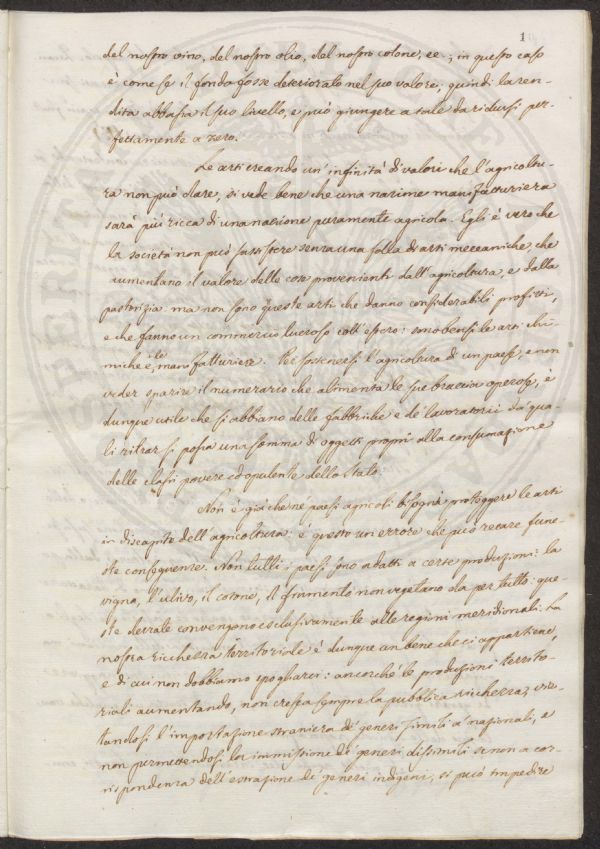 1
del nostro vino, del nostro olio, del nostro cotone, ec ; in questo caso
è come se il fondo fosse deteriorato nel suo valore; quindi la ren-
dita abbassa il suo livello, e può giungere a tale da ridursi per-
fettamente a zero.
Le arti creando un' infinità di valori che l'agricoltu-
ra non può dare, si vede bene che una nazione manifatturiera
sarà più ricca di una nazione puramente agricola. Egli è vero che
la società non può sussistere senza una folla di arti meccaniche che
aumentano il valore delle cose provenienti dall'agricoltura, e dalla
pastorizia: ma non sono queste arti che danno considerabili profitti,
e che fanno un commercio lucroso coll' estero: sono bensì le arti chi-
miche e le manifatturiere. Per sostenersi l'agricoltura di un paese, e non
veder sparire il numerario che alimenta le sue braccia operose, è
dunque utile che si abbiano delle fabbriche e de' lavoratorii da' qua-
li ritrarsi possa una somma di oggetti proprii alla consumazione
delle classi povere ed opulente dello Stato.
Non è già che ne' paesi agricoli bisogna proteggere le arti
in discapito dell'agricoltura: è questo un errore che può recare fune-
ste conseguenze. Non tutti i paesi sono adatti a certe produzioni: la
vigna, l'ulivo, il cotone, il frumento non vegetano da per tutto: que-
ste derrate convengono esclusivamente alle regioni meridionali. La
nostra ricchezza territoriale è dunque un bene che ci appartiene,
e di cui non dobbiamo spogliarci: ancorchè le produzioni territo-
riali aumentando, non cresca sempre la pubblica ricchezza, vie-
tandosi l'importazione straniera de' generi simili a' nazionali, e
non permettendosi la immissione di generi dissimili se non a cor-
rispondenza dell'estrazione de' generi indigeni, si può impedire